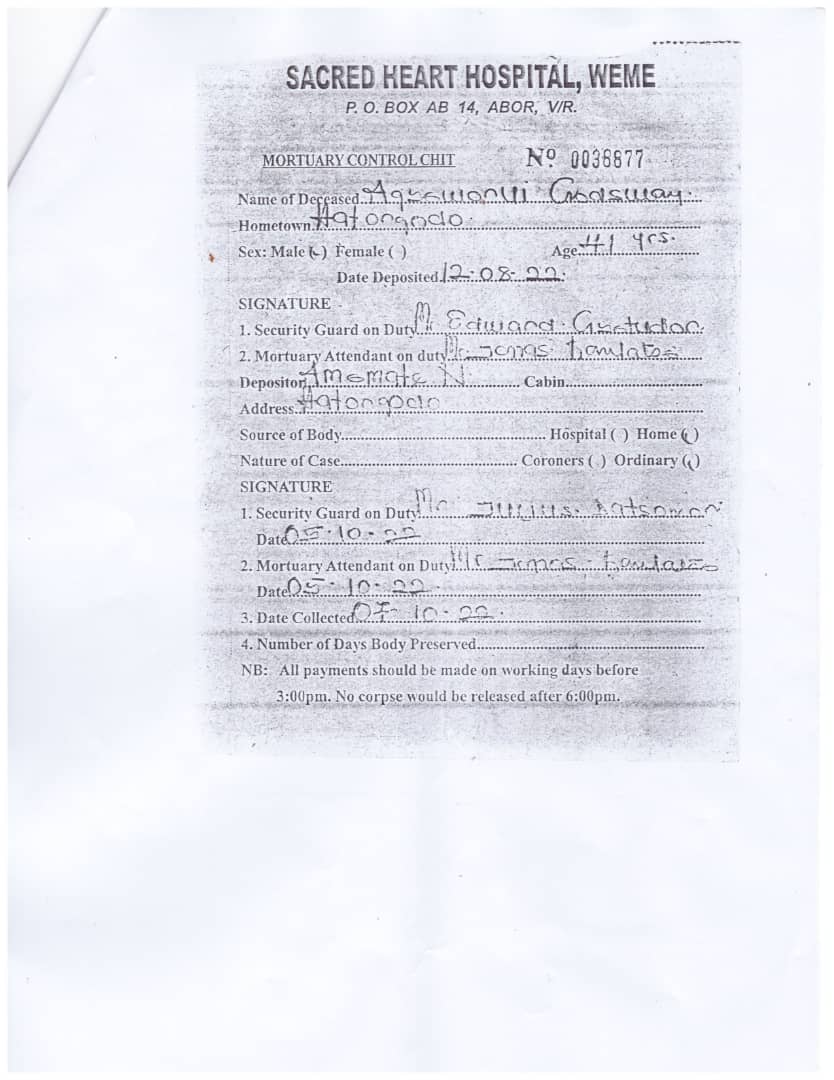 SACRED HEART HOSPITAL, WEME
P. O. BOX AB 14, ABOR, V/R.
MORTUARY CONTROL CHIT Nº 0036877
Name of Deceased
Hometown Hatorgodo
Sex: Male (✓) Female ( ) Age 41 yrs.
Date Deposited 12-08-22
SIGNATURE
1. Security Guard on Duty Mr Edward
2. Mortuary Attendant on duty Mr Jonas
Depositor Amemate N Cabin
Address Hatorgodo
Source of Body Hospital ( ) Home (✓)
Nature of Case Coroners ( ) Ordinary (✓)
SIGNATURE
1. Security Guard on Duty Mr. Julius
Date 05-10-22
2. Mortuary Attendant on Duty Mr Jonas
Date 05-10-22
3. Date Collected 07-10-22
4. Number of Days Body Preserved
NB: All payments should be made on working days before
3:00pm. No corpse would be released after 6:00pm.